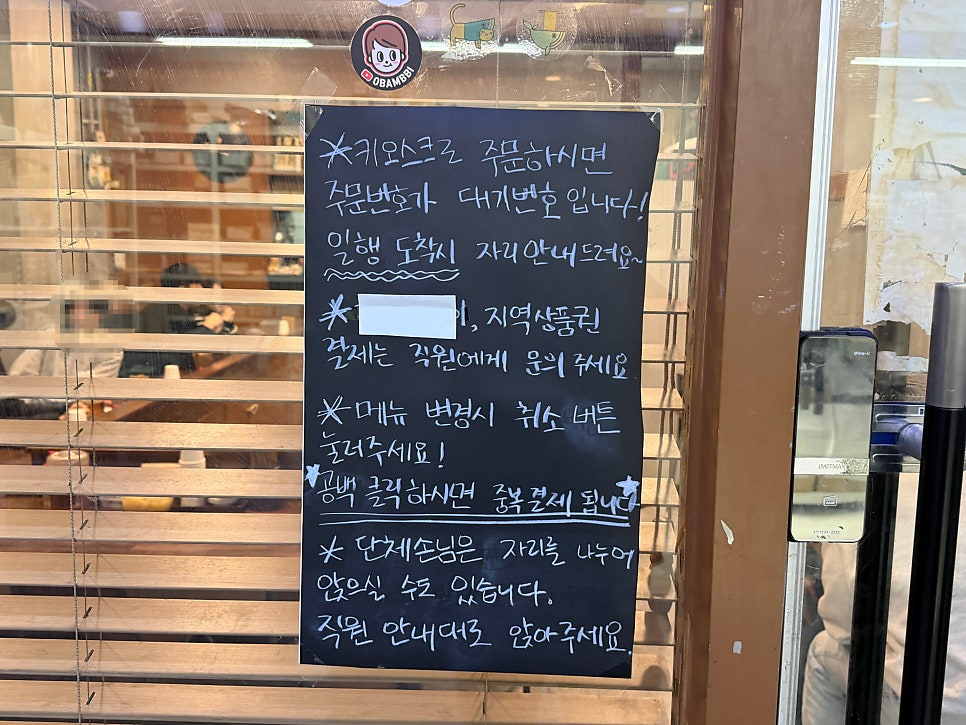 OBAMBBI
*키오스크로 주문하시면
주문번호가 대기번호입니다!
일행 도착시 자리안내드려요~
* , 지역상품권
결제는 직원에게 문의 주세요
*메뉴 변경시 취소 버튼
눌러주세요!
공백 클릭하시면 중복결제 됩니다
* 단체손님은 자리를 나누어
앉으실 수도 있습니다.
직원 안내대로 앉아주세요.
shine-U
GATEMAN